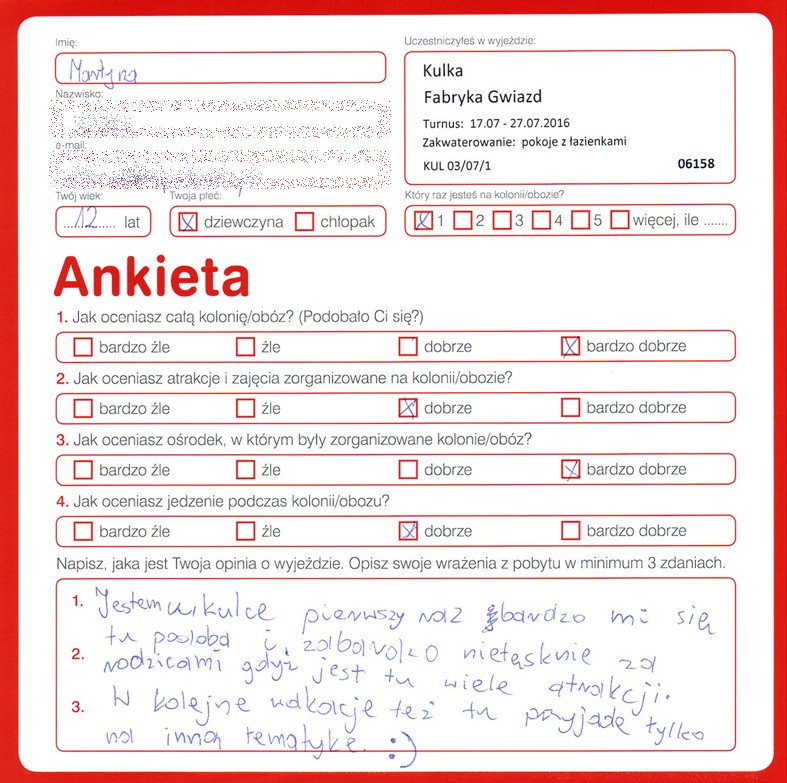 Imię:
Martyna
Nazwisko:
e-mail:
Twój wiek:
12 lat
Twoja płeć:
dziewczyna chłopak
Uczestniczyłeś w wyjeździe:
Kulka
Fabryka Gwiazd
Turnus: 17.07 - 27.07.2016
Zakwaterowanie: pokoje z łazienkami
KUL 03/07/1 06158
Który raz jesteś na kolonii/obozie?
1 2 3 4 5 więcej, ile .......
Ankieta
1. Jak oceniasz całą kolonię/obóz? (Podobało Ci się?)
bardzo źle źle dobrze bardzo dobrze
2. Jak oceniasz atrakcje i zajęcia zorganizowane na kolonii/obozie?
bardzo źle źle dobrze bardzo dobrze
3. Jak oceniasz ośrodek, w którym były zorganizowane kolonie/obóz?
bardzo źle źle dobrze bardzo dobrze
4. Jak oceniasz jedzenie podczas kolonii/obozu?
bardzo źle źle dobrze bardzo dobrze
Napisz, jaka jest Twoja opinia o wyjeździe. Opisz swoje wrażenia z pobytu w minimum 3 zdaniach.
1. Jestem w kulce pierwszy raz bardzo mi się
tu podoba i zabardzo nietęsknie za
2. rodzicami gdyż jest tu wiele atrakcji.
3. W kolejne wakacje też tu przyjadę tylko
na inną tematykę. :)